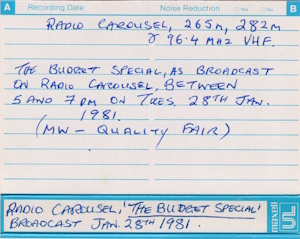 A Recording Date: Noise Reduction Yes No B
RADIO CAROUSEL, 265m, 282m
& 96.4 MHZ VHF.
THE BUDGET SPECIAL, AS BROADCAST
ON RADIO CAROUSEL, BETWEEN
5 AND 7 PM ON TUES. 28TH JAN.
1981.
(MW - QUALITY FAIR)
RADIO CAROUSEL, 'THE BUDGET SPECIAL'
BROADCAST JAN. 28TH 1981.
maxell
UL